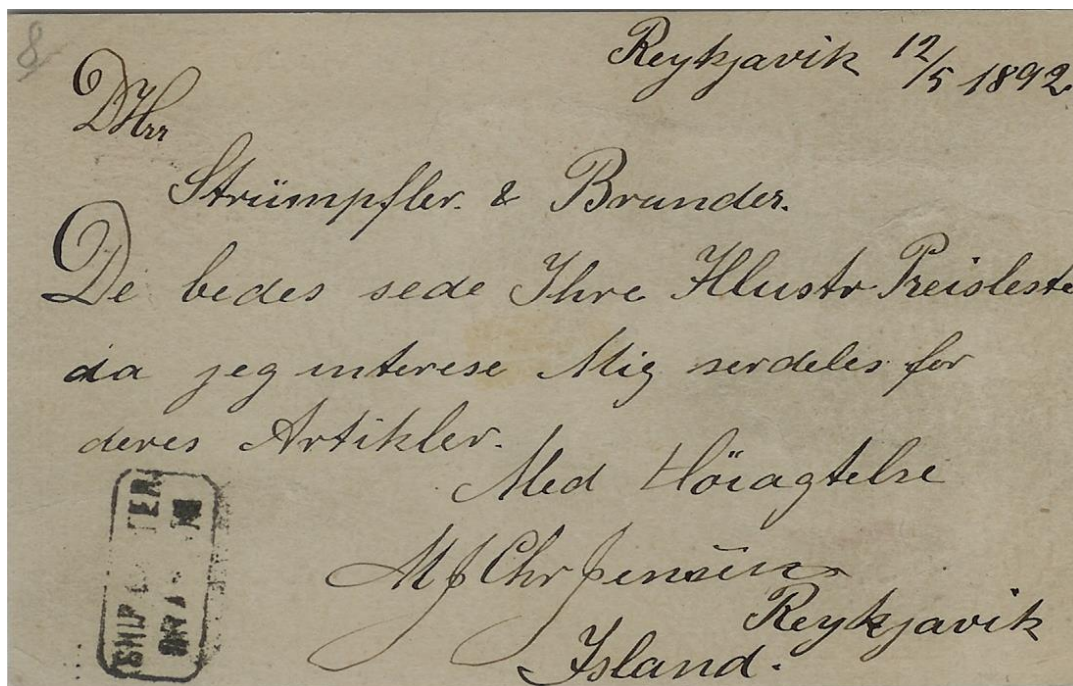 8
Reykjavik 12/5 1892.
DHrr
Strümpfler. & Brander.
De bedes sede Ihre Illustr Preisleste
da jeg interese Mig serdeles for
deres Artikler.
Med Höiagtelse
M J Chr Jensen
Reykjavik
Island.